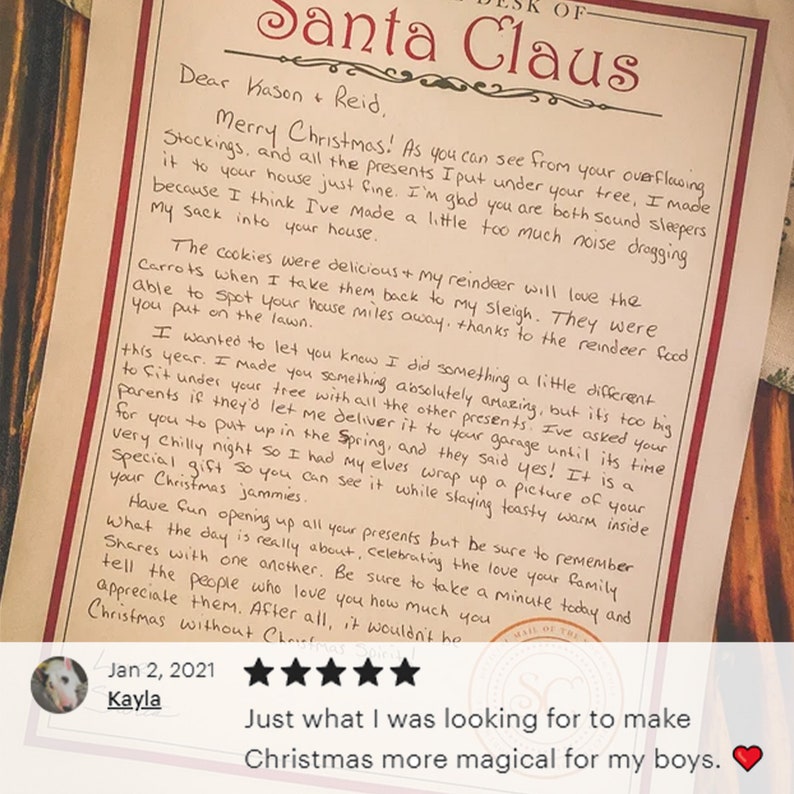 DESK OF
Santa Claus
Dear Kason + Reid,
Merry Christmas! As you can see from your overflowing
stockings, and all the presents I put under your tree, I made
it to your house just fine. I'm glad you are both sound sleepers
because I think I've made a little too much noise dragging
my sack into your house.
The cookies were delicious + my reindeer will love the
carrots when I take them back to my sleigh. They were
able to spot your house miles away, thanks to the reindeer food
you put on the lawn.
I wanted to let you know I did something a little different
this year. I made you something absolutely amazing, but it's too big
to fit under your tree with all the other presents. I've asked your
parents if they'd let me deliver it to your garage until its time
for you to put up in the Spring, and they said yes! It is a
very chilly night so I had my elves wrap up a picture of your
special gift so you can see it while staying toasty warm inside
your Christmas jammies.
Have fun opening up all your presents but be sure to remember
what the day is really about, celebrating the love your family
shares with one another. Be sure to take a minute today and
tell the people who love you how much you
appreciate them. After all, it wouldn't be
Christmas without Christmas Spirit!
SC
Jan 2, 2021
Kayla
Just what I was looking for to make
Christmas more magical for my boys.